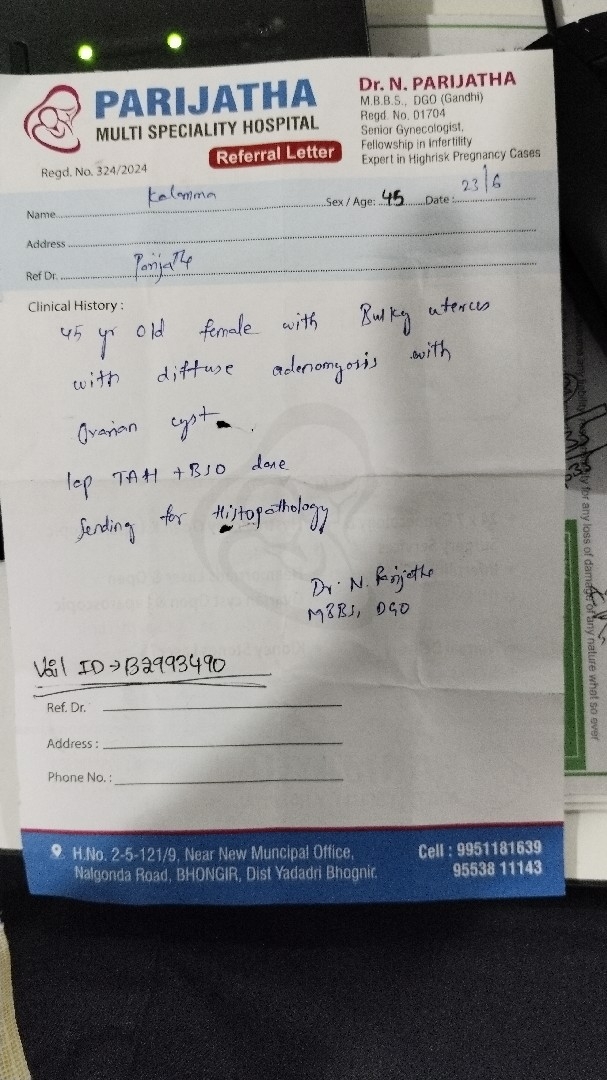 PARIJATHA
MULTI SPECIALITY HOSPITAL
Regd. No. 324/2024
Referral Letter
Dr. N. PARIJATHA
M.B.B.S., DGO (Gandhi)
Regd. No. 01704
Senior Gynecologist,
Fellowship in Infertility
Expert in Highrisk Pregnancy Cases
Name Kalamma Sex / Age: 45 Date: 23/6
Address
Ref Dr. Parijatha
Clinical History :
45 yr old female with Bulky uterus
with diffuse adenomyosis with
Ovarian cyst.
lap TAH + BSO done
Sending for Histopathology
Dr. N. Parijatha
MBBS, DGO
Vail ID → B2993490
Ref. Dr.
Address :
Phone No. :
H.No. 2-5-121/9, Near New Muncipal Office,
Nalgonda Road, BHONGIR, Dist Yadadri Bhognir.
Cell : 9951181639
95538 11143
for any loss of damage of any nature what so ever